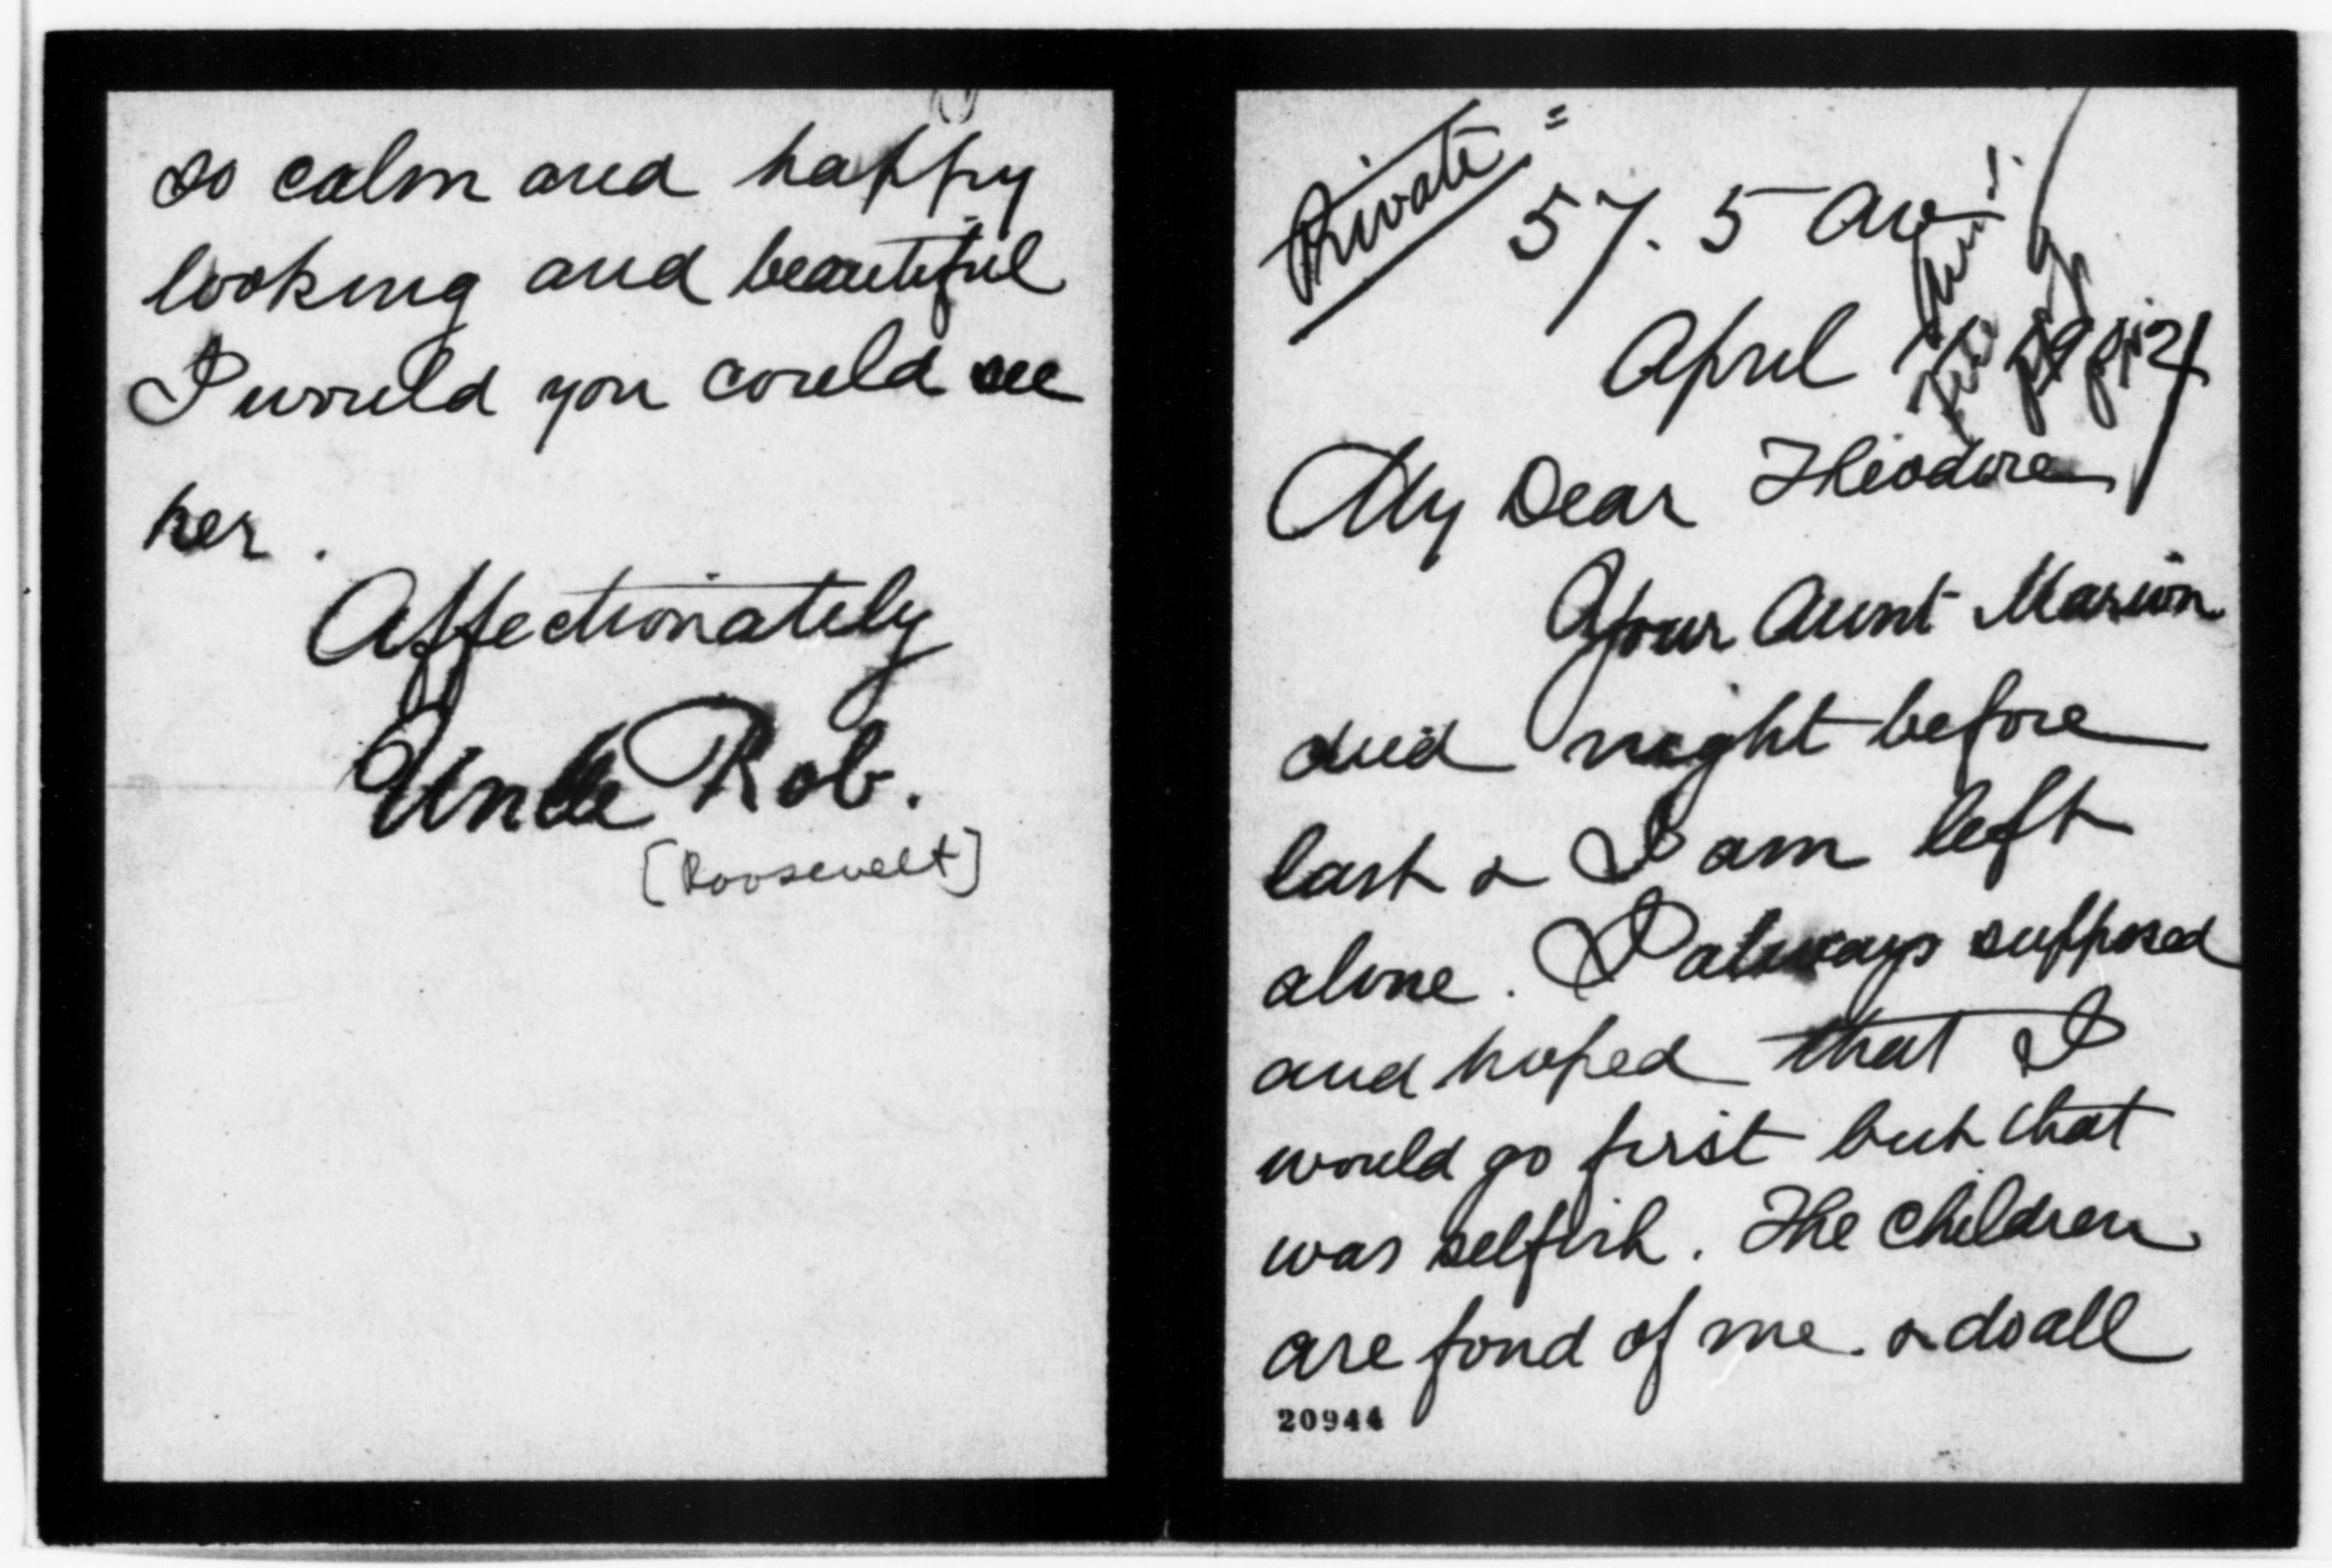 so calm and happy
looking and beautiful
I would you could see
her.
Affectionately
Uncle Rob.
[Roosevelt]
Private =
57. 5 Ave
April
My Dear Theodore
Your Aunt Marion
died night before
last & I am left
alone. I always supposed
and hoped that I
would go first but that
was selfish. The children
are fond of me & do all
20944